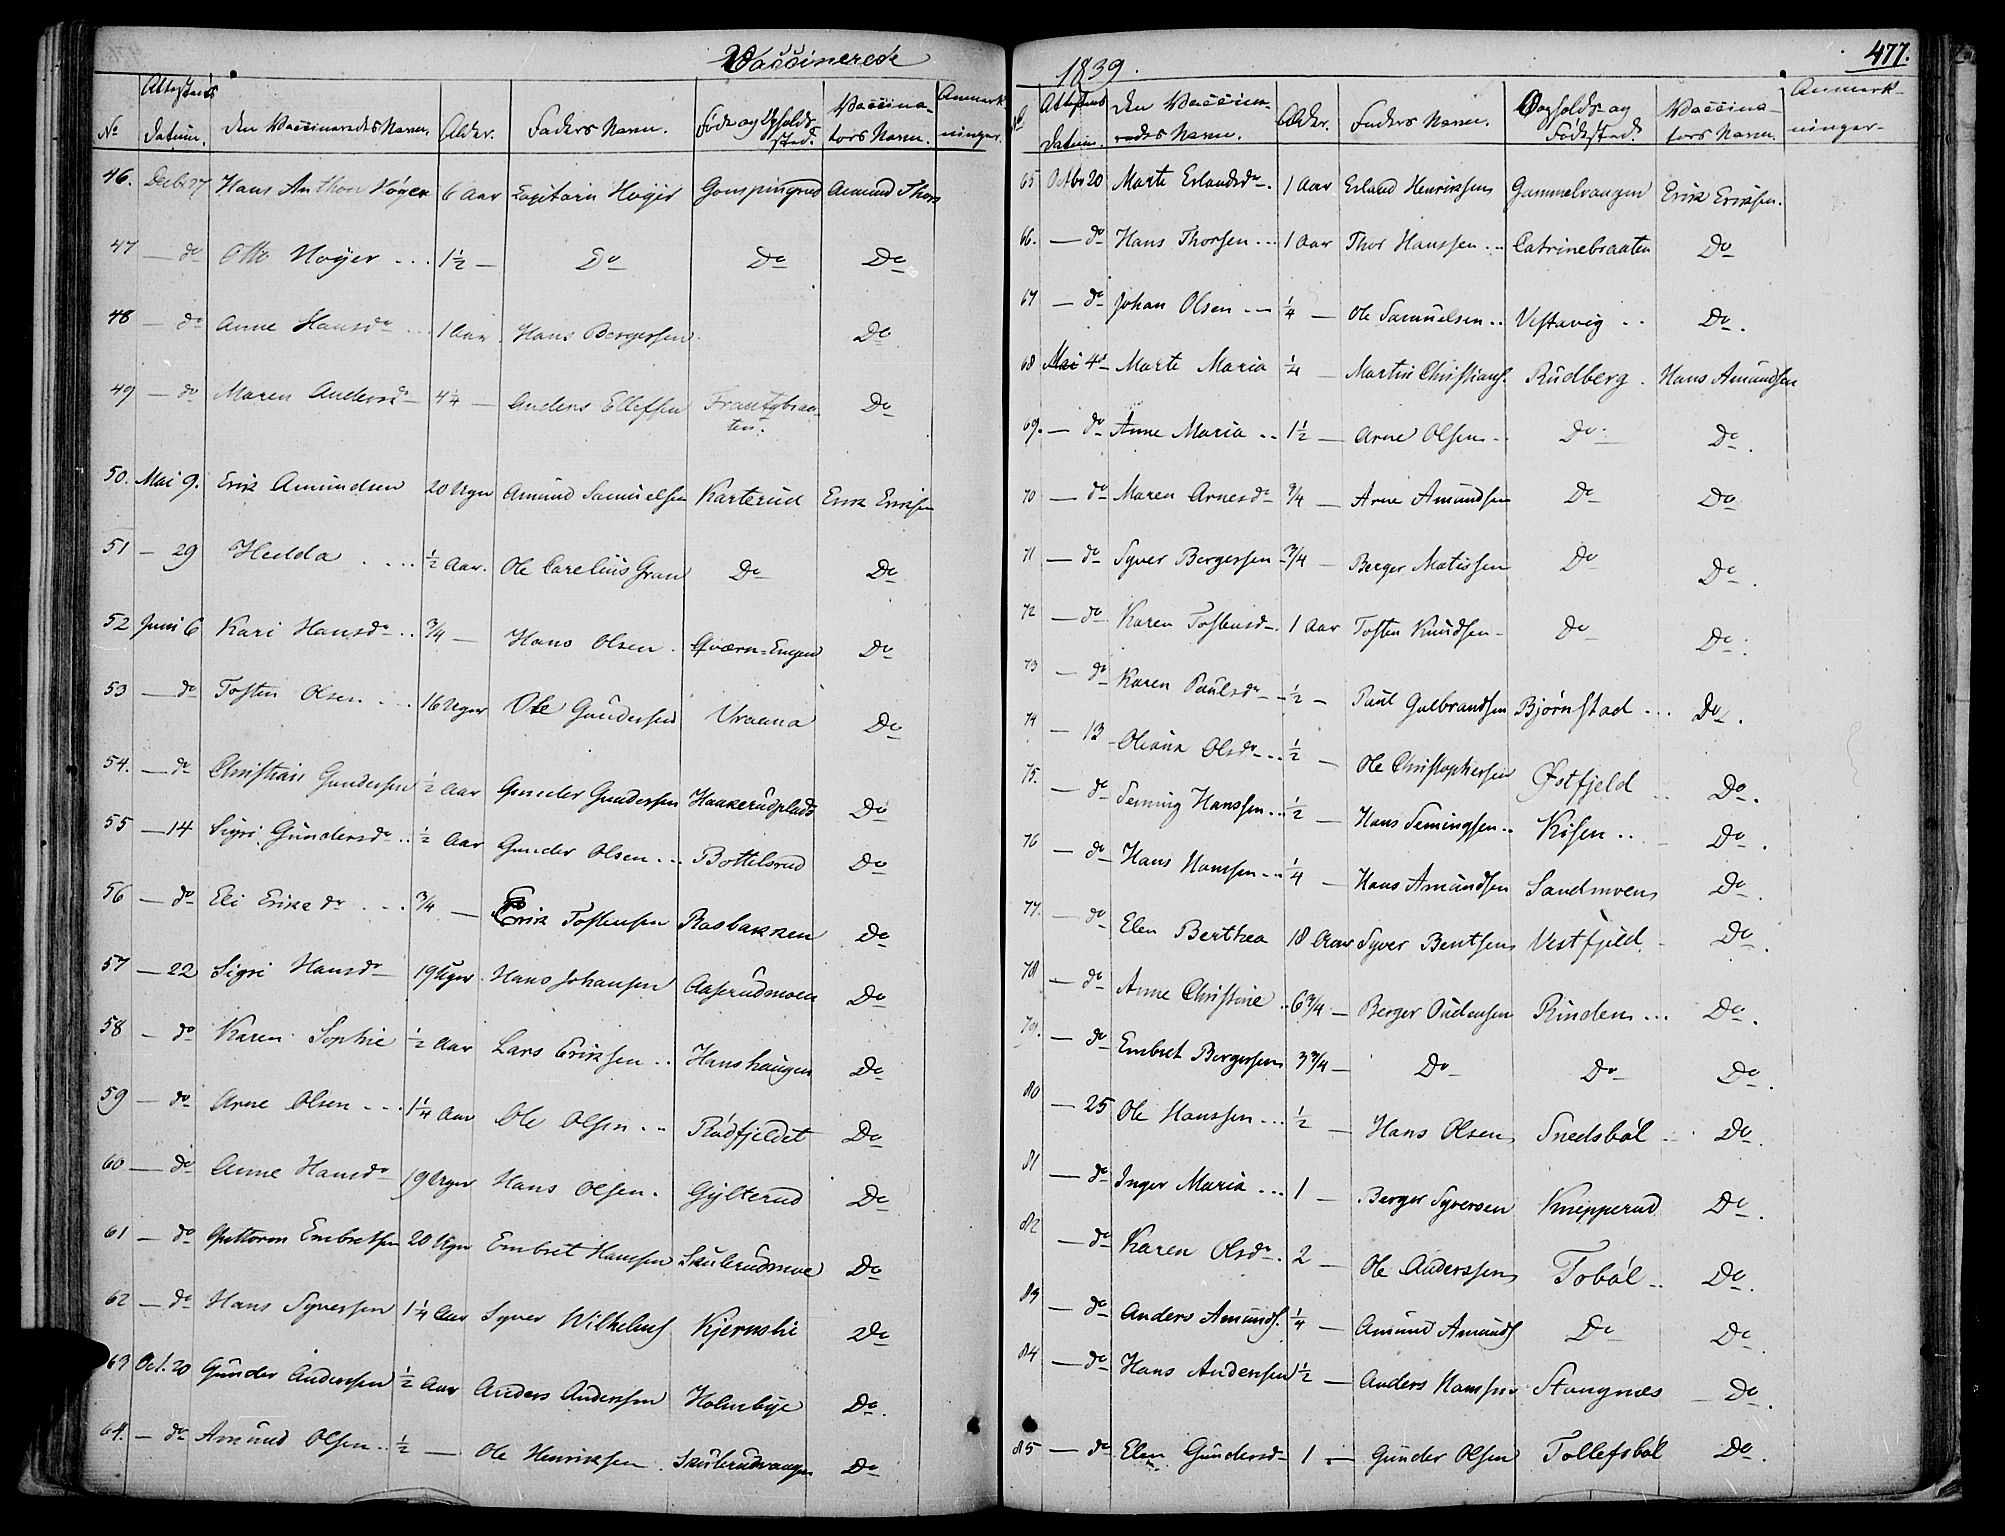 Vaccinerede
No Attestens Datum. den Vaccineredes Navn. Alder. Faders Navn. Føde og Opholdssted. Vaccinators Navn. Anmærkninger.
46. Decbr 27 Hans Anthon Høyer 6 Aar Capitain Høyer Amund Thors
47 — do Otto Høyer ... 1½ — Do Do Do
48 — do Anne Hansdr ... 1 Aar Hans Bergersen Do
49 — do Maren Andersdr 4¼ — Anders Ellefsen Frantzbraaten. Do
50. Mai 9. Erik Amundsen 20 Uger Amund Samuelsen Karterud Erik Eriksen
51 — 29 Hedda .... ½ Aar. Ole Carelius Gran Do Do
52 Juni 6 Kari Hansdr .. ¾ — Hans Olsen. Qværn-Engen Do
53 — do Tosten Olsen ... 16 Uger Ole Gundersen Vraana Do
54. — do Christian Gundersen ½ Aar Gunder Gundersen Haakerudplads Do
55 — 14 Sigri Gundersdr .. ½ Aar Gunder Olsen ... Bottelsrud Do
56 — do Eli Eriksdr ... ¾ — Erik Tostensen Rasbakken Do
57 — 22 Sigri Hansdr 19 Uger Hans Johansen Aaserudmoen Do
58 — do Karen Sophie ½ Aar Lars Eriksen .. Hanshaugen Do
59 — do Arne Olsen ... 1¼ Aar Ole Olsen .. Rødfjeldet Do
60 — do Anne Hansdr 19 Uger Hans Olsen. Gylterud Do
61 — do Guttorm Embretsen 20 Uger Embret Hansen Skulerudmoe Do
62 — do Hans Syversen 1¼ Aar Syver Wilhelms Kjernsli Do
63 Oct. 20 Gunder Andersen ½ Aar Anders Andersen Holmbye Do.
64. — do Amund Olsen .. ½ — Ole Henriksen. Skulerudvangen Do
1839. 477.
Attestens Datum. den Vaccineredes Navn. Alder. Faders Navn. Opholds og Fødested. Vaccinators Navn. Anmærkninger.
65 Octbr 20 Marte Erlandsdr. 1 Aar Erland Henriksen Gammelvangen Erik Eriksen.
66. — do Hans Thorsen ... 1 Aar Thor Hanssen ... Catrinebraaten Do
67 — do Johan Olsen ... ¼ — Ole Samuelsen .. Vestavig .. Do.
68 Mai 4de Marte Maria ¼ — Martin Christians. Rudberg. Hans Amundsen
69. — do Anne Maria .. 1½ — Arne Olsen .. Do Do.
70 — do Maren Arnesdr ¾ — Arne Amundsen Do Do
71 — do Syver Bergersen ¾ — Berger Matissen Do Do.
72 — do Karen Tostensd. 1 Aar Tosten Knudsen Do Do.
73 — do Karen Paulsdr ½ — Paul Gulbrandsen Bjørnstad ... Do.
74 — 13 Oleana Olsdr ... ½ — Ole Christophersen Østfjeld .. Do.
75. — do Seming Hanssen ... ½ — Hans Semingsen .. Kisen .. Do.
76 — do Hans Hanssen ... ¼ — Hans Amundsen Sandmoen Do.
77. — do Elen Berthea 18 Aar Syver Bentsen Vestfjeld Do.
78 — do Anne Christine .. 6¾ — Berger Oudensen Rinden ... Do.
79. — do Embret Bergersen 3¾ — Do Do Do.
80 — 25 Ole Hanssen ... ½ — Hans Olsen Snedsbøl .. Do.
81 — do Inger Maria ... 1 — Berger Syversen Knepperud Do.
82 — do Karen Olsdr. 2 — Ole Anderssen Tobøl .. Do.
83 — do Anders Amunds. ¼ — Amund Amunds Do Do.
84 — do Hans Andersen ½ — Anders Hanssen Stangnæs Do.
85 — do Elen Gundersd 1 — Gunder Olsen Tollefsbøl Do.